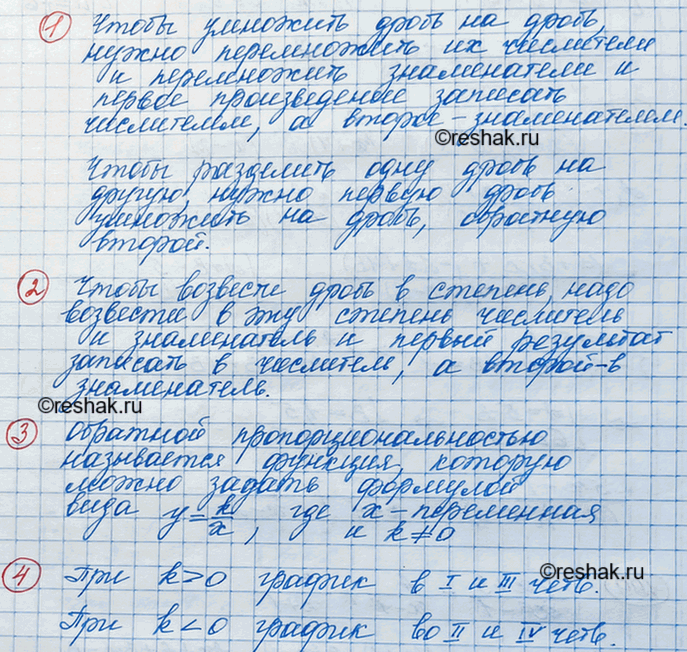 1 Чтобы умножить дробь на дробь,
нужно перемножить их числители
и перемножить знаменатели и
первое произведение записать
числителем, а второе - знаменателем.
©reshak.ru
Чтобы разделить одну дробь на
другую, нужно первую дробь
умножить на дробь, обратную
второй.
2 Чтобы возвести дробь в степень, надо
возвести в эту степень числитель
и знаменатель и первый результат
записать в числитель, а второй - в
знаменатель.
©reshak.ru
3 Обратной пропорциональностью
называется функция, которую
можно задать формулой
вида y = k/x, где x - переменная
и k ≠ 0
©reshak.ru
4 При k > 0 график в I и III четв.
При k < 0 график во II и IV четв.